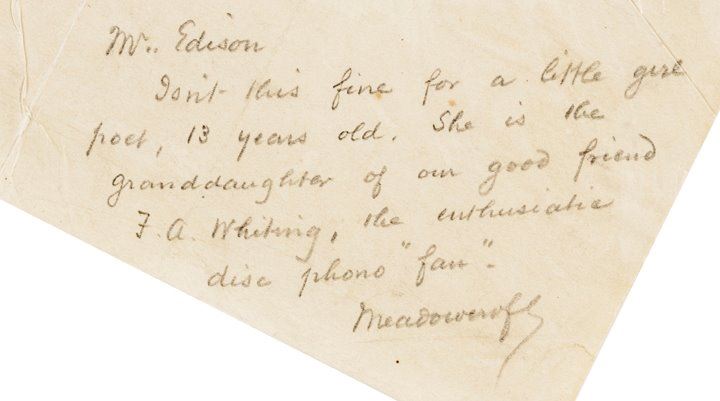 Mr. Edison
Isn't this fine for a little girl
poet, 13 years old. She is the
granddaughter of our good friend
F. A. Whiting, the enthusiatic
disc phono "fan".
Meadowcroft